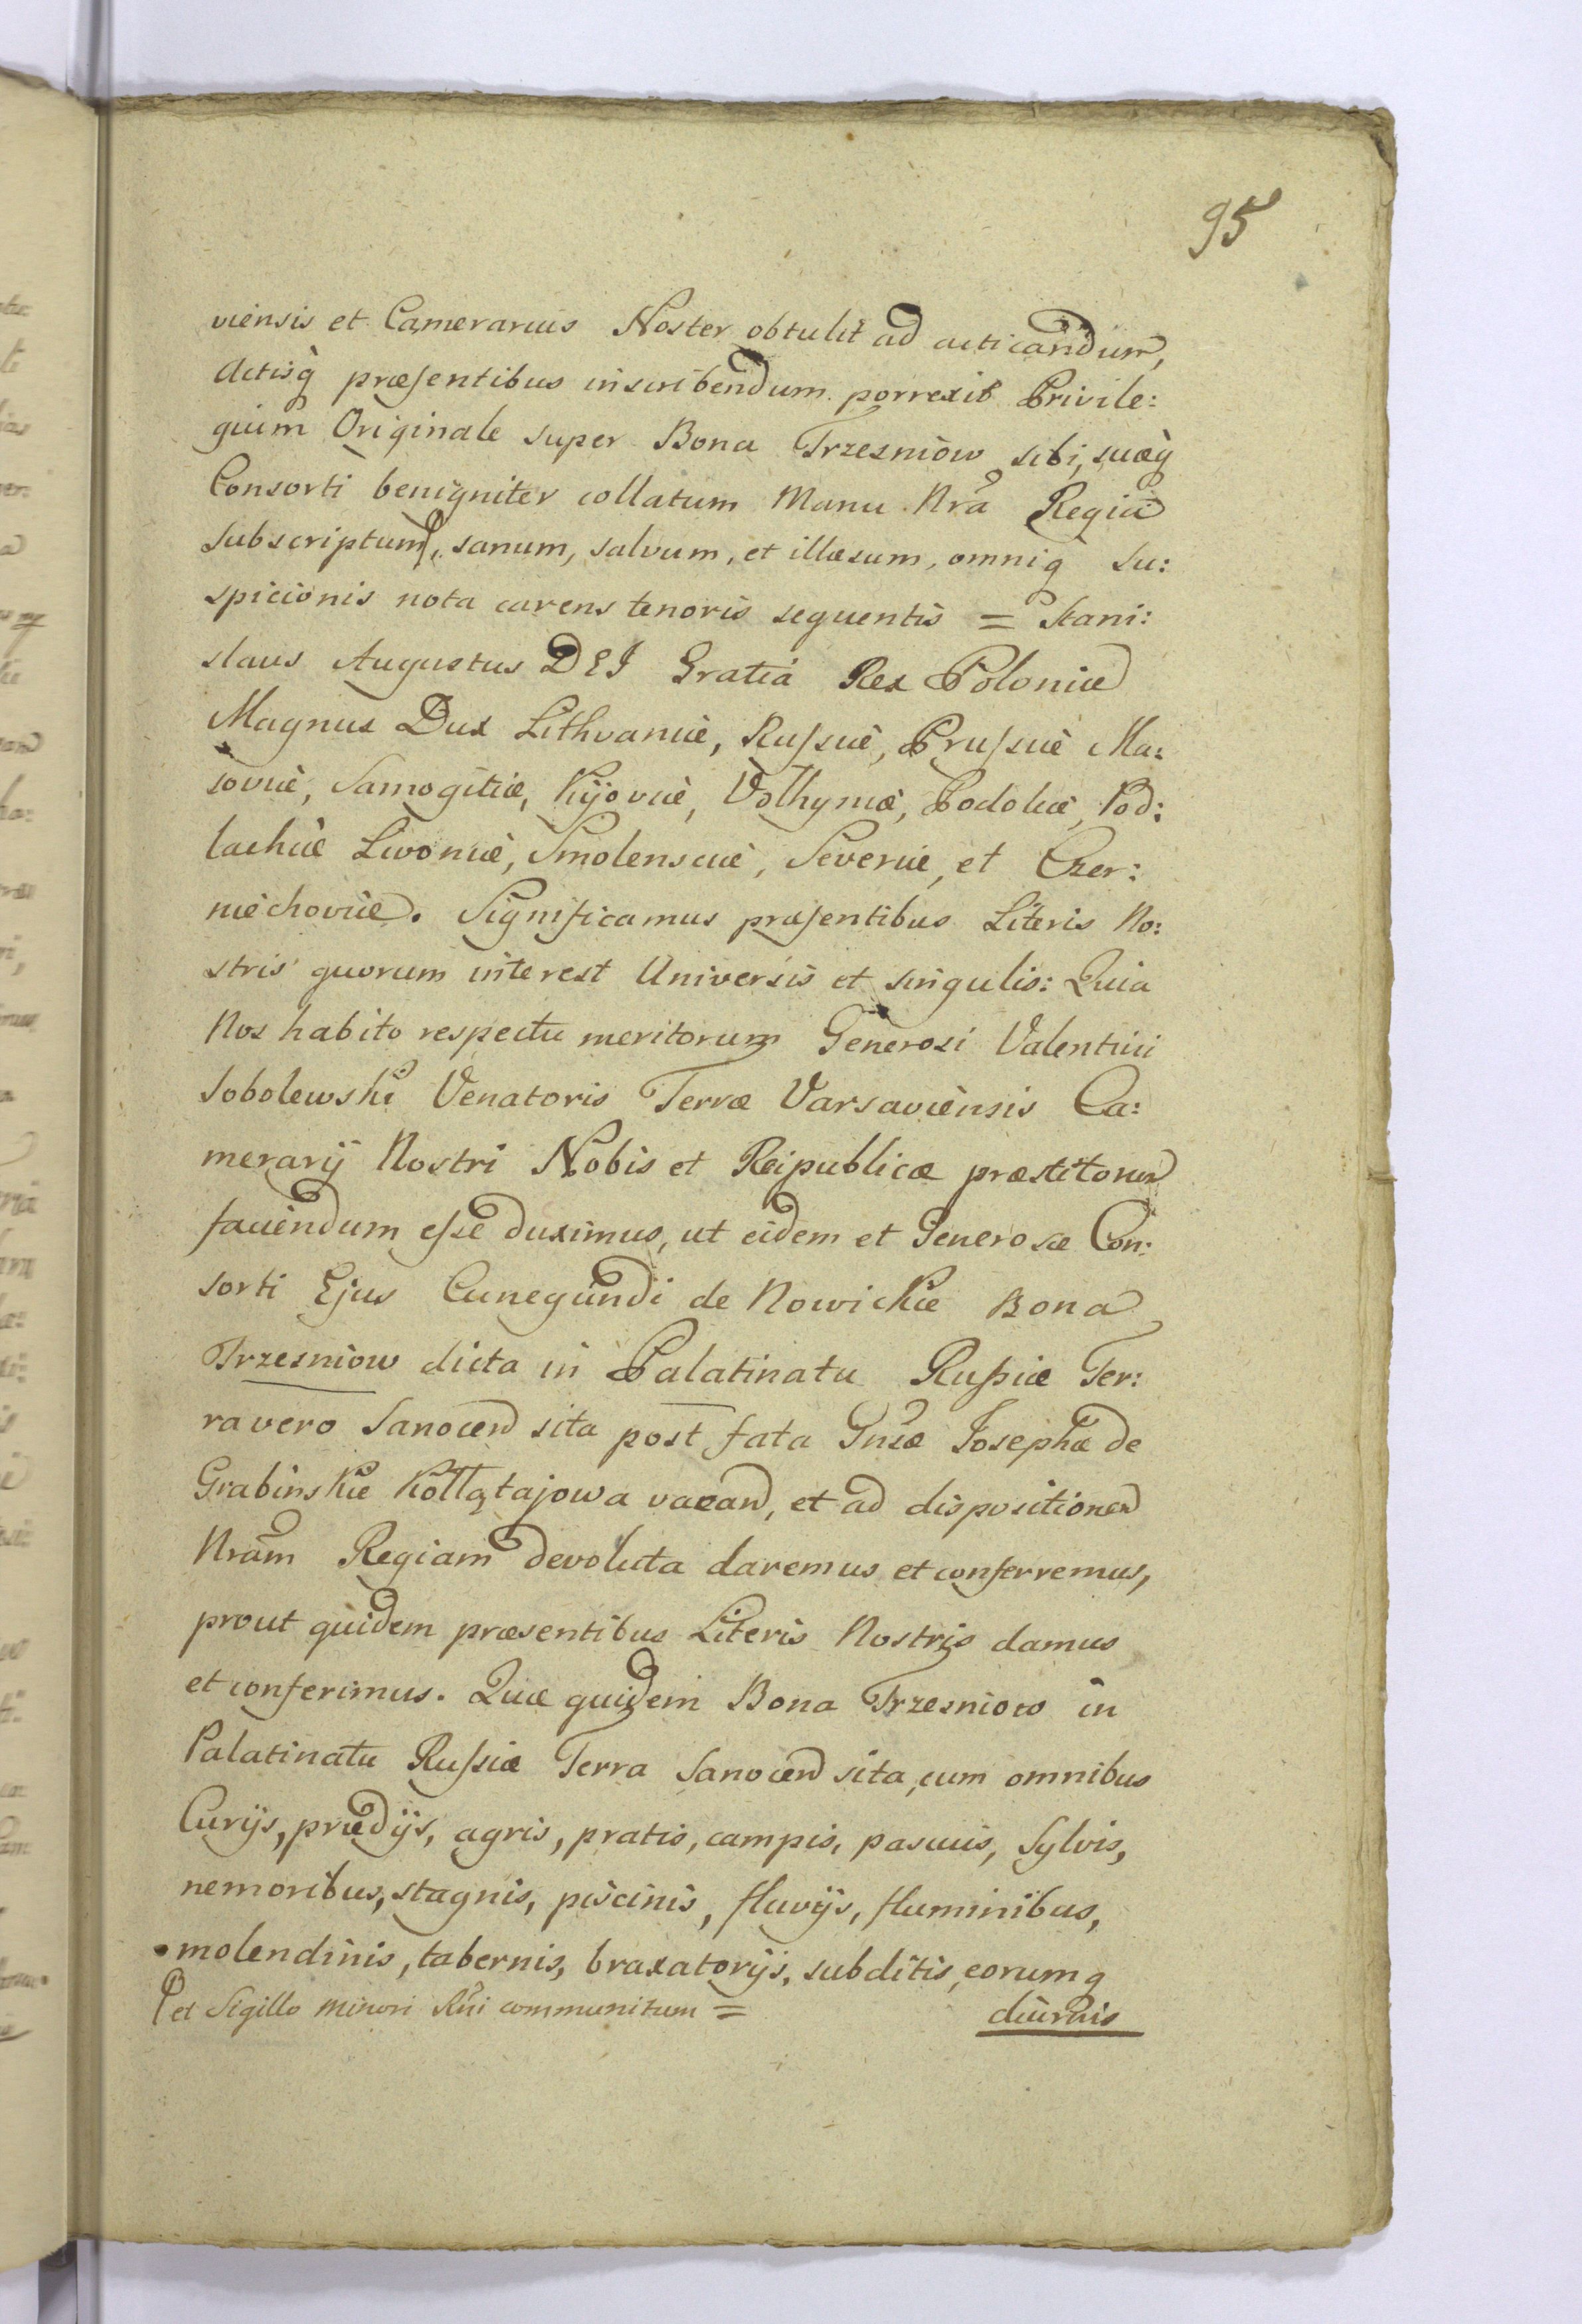 95
viensis et Camerarius Noster obtulit ad acticandum,
Actisq̀ præsentibus inscribendum porrexit Privile:
gium Originale super Bona Trzesniow sibi, suæq̀
Consorti benigniter collatum Manu Nrã Regia
Subscriptum, sanum, salvum, et illæsum, omniq Su:
spicionis nota carens tenoris sequentis = Stani:
slaus Augustus DEI Gratiá Rex Poloniæ
Magnus Dux Lithvaniæ, Russiæ, Prussiæ Ma:
soviæ, Samogitiæ, Kijoviæ, Volhyniæ, Podoliæ, Pod:
lachiæ Livoniæ, Smolensciæ, Severiæ, et Czer:
niechoviæ. Significamus præsentibus Literis No:
stris quorum interest Universis et singulis: Quia
Nos habito respectu meritorum Generosi Valentini
Sobolewski Venatoris Terræ Varsaviensis Ca:
merarij Nostri Nobis et Reipublicæ præstitorum
faciendum esse duximus, ut eidem et Generosæ Con:
sorti Ejus Cunegundi de Nowickie Bona
Trzesniow dicta in Palatinatu Russiæ Ter:
ra vero Sanocen sita post fata Gnsæ Josephæ de
Grabinskie Kołłątajowa vacan, et ad dispositionem
Nrãm Regiam devoluta daremus et conferremus,
prout quidem præsentibus Literis Nostris damus
et conferimus. Quæ quidem Bona Trzesniow in
Palatinatu Russiæ Terra Sanocen sita, cum omnibus
Curijs, prædijs, agris, pratis, campis, pascuis, Sylvis,
nemoribus, stagnis, piscinis, fluvijs, fluminibus,
molendinis, tabernis, braxatorijs, subditis, eorumq
et Sigillo minori Rni communitum =
diurnis